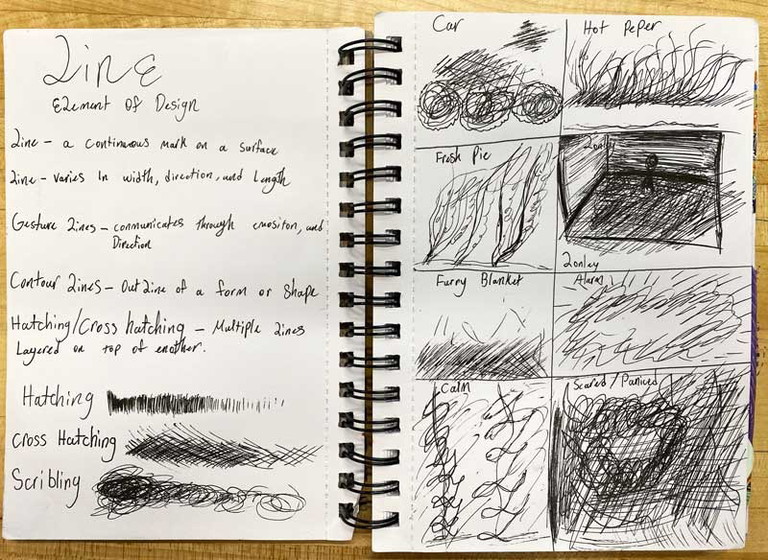 Line
Element of Design
Line – a continuous mark on a surface
Line – varies in width, direction, and Length
Gesture Lines – communicates through emositon, and
Direction
Contour Lines – Out Line of a form or shape
Hatching/Cross hatching – Multiple Lines
Layered on top of enother.
Hatching
Cross Hatching
Scribling
Car
Hot Peper
Fresh Pie
Lonley
Lonley
Furry Blanket
Alarm
Calm
Scared / Paniced